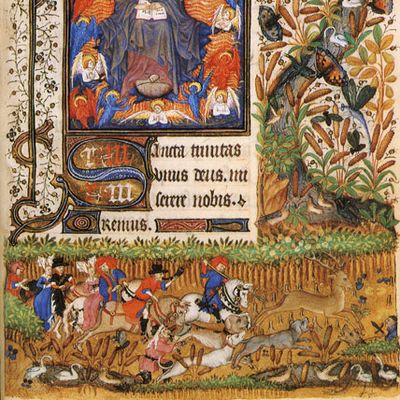 Sancta trinitas
vnus deus. mi
serere nobis.
Oremus.